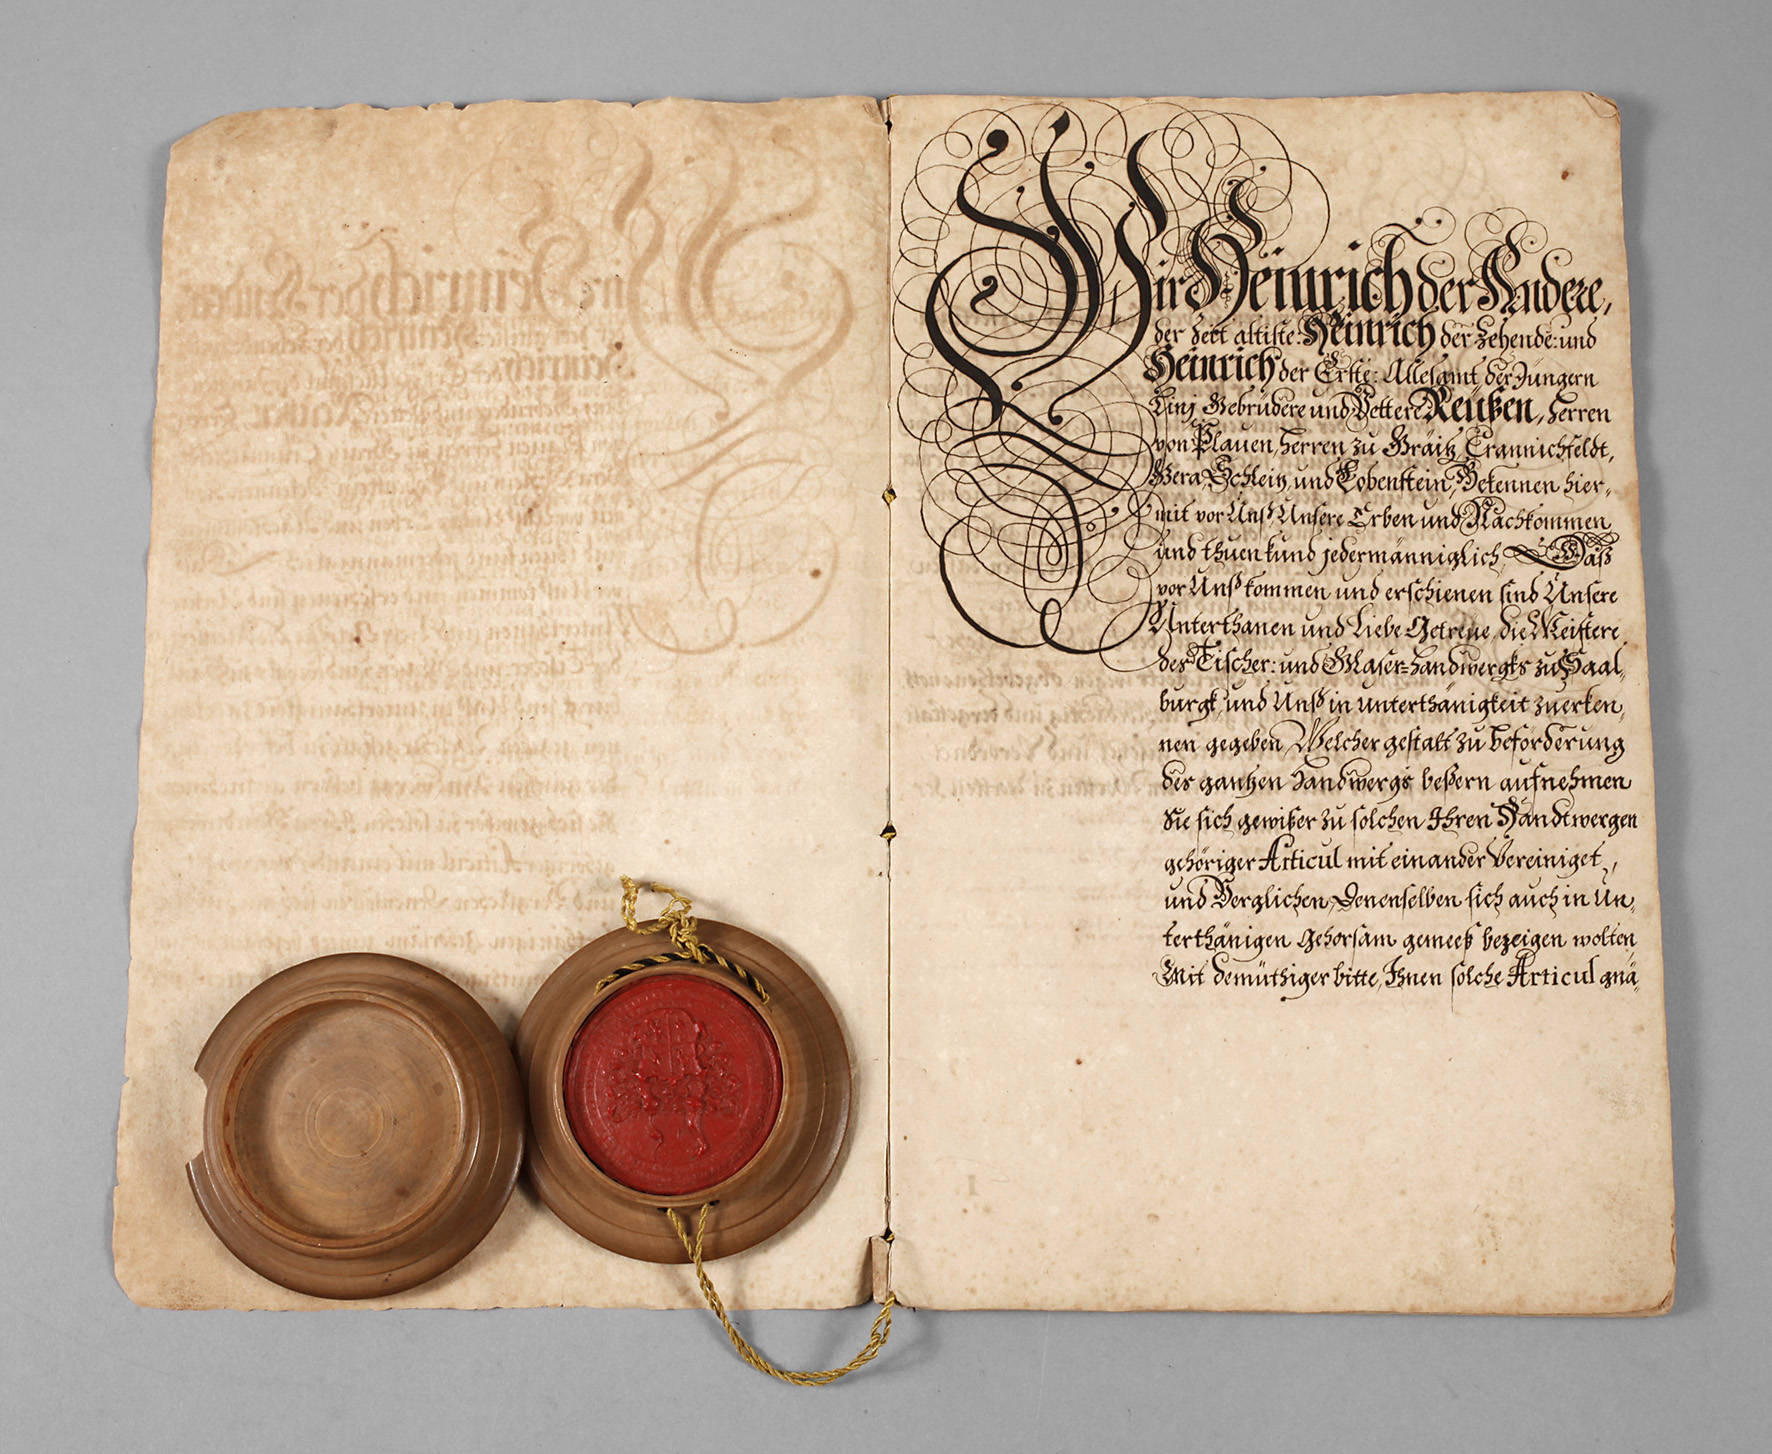 Wir Heinrich der Andere,
der Zeit ältiste: Heinrich der Zehende: und
Heinrich der Erste: Allesamt der Jüngern
Linj Gebrüdere und Vettere Reußen, Herren
von Plauen, Herren zu Gräitz, Crannichfeldt,
Gera, Schleitz, und Lobenstein, Bekennen hier-
mit vor Unß Unsere Erben und Nachkommen
und thuen kund jedermänniglich, Daß
vor Unß kommen und erschienen sind Unsere
Unterthanen und Liebe Getreüe, die Meistere
des Tischer: und Glaser-Handwergks zu Saal-
burgk, und Unß in Unterthänigkeit zuerken-
nen gegeben, Welcher gestalt zu beförderung
des gantzen Handwergs beßern aufnehmen
Sie sich gewißer zu solchen Ihren Handtwergen
gehöriger Articul mit einander Vereiniget,
und Verglichen, Denenselben sich auch in Un-
terthänigen Gehorsam gemeeß bezeigen wolten,
Mit demüthiger bitte, Ihnen solche Articul gnä-